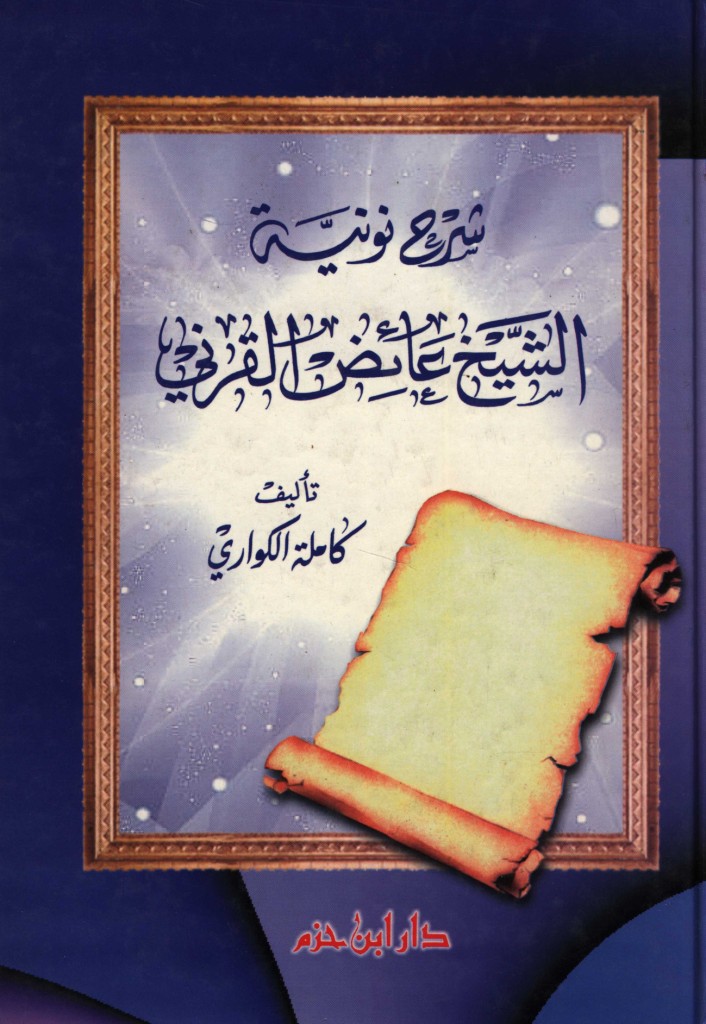 شرح نونية
الشيخ عائض القرني
تأليف
كاملة الكواري
دار ابن حزم